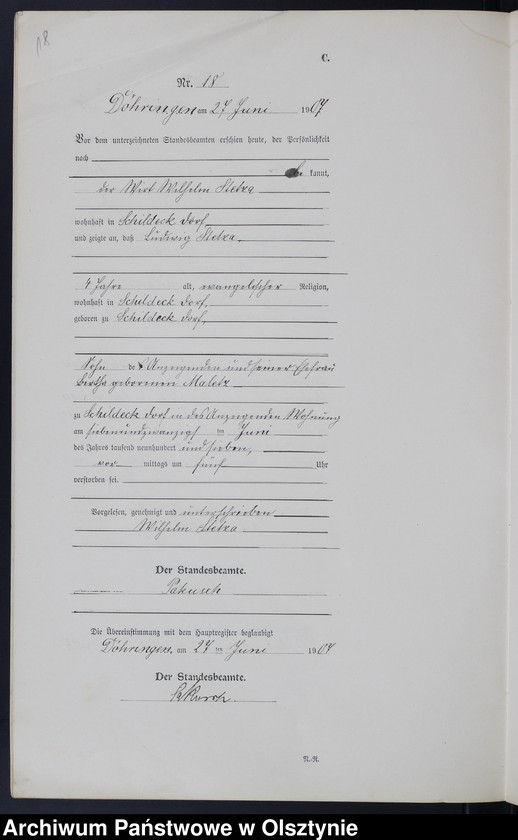 18
C.
Nr. 18
Döhringen am 27 Juni 1907
Vor dem unterzeichneten Standesbeamten erschien heute, der Persönlichkeit
nach
be kannt,
der Wirt Wilhelm
wohnhaft in Schildeck Dorf
und zeigte an, daß Ludwig
4 Jahre alt, evangelischer Religion,
wohnhaft in Schildeck Dorf,
geboren zu Schildeck Dorf,
Sohn des Anzeigenden und seiner Ehefrau
geborenen
zu Schildeck Dorf in des Anzeigenden Wohnung
am siebenundzwanzigsten Juni
des Jahres tausend neunhundert und sieben,
vor mittags um fünf Uhr
verstorben sei.
Vorgelesen, genehmigt und unterschrieben
Wilhelm
Der Standesbeamte.
Die Übereinstimmung mit dem Hauptregister beglaubigt
Döhringen, am 27 ten Juni 1907
Der Standesbeamte.
N.-R.
Archiwum Państwowe w Olsztynie